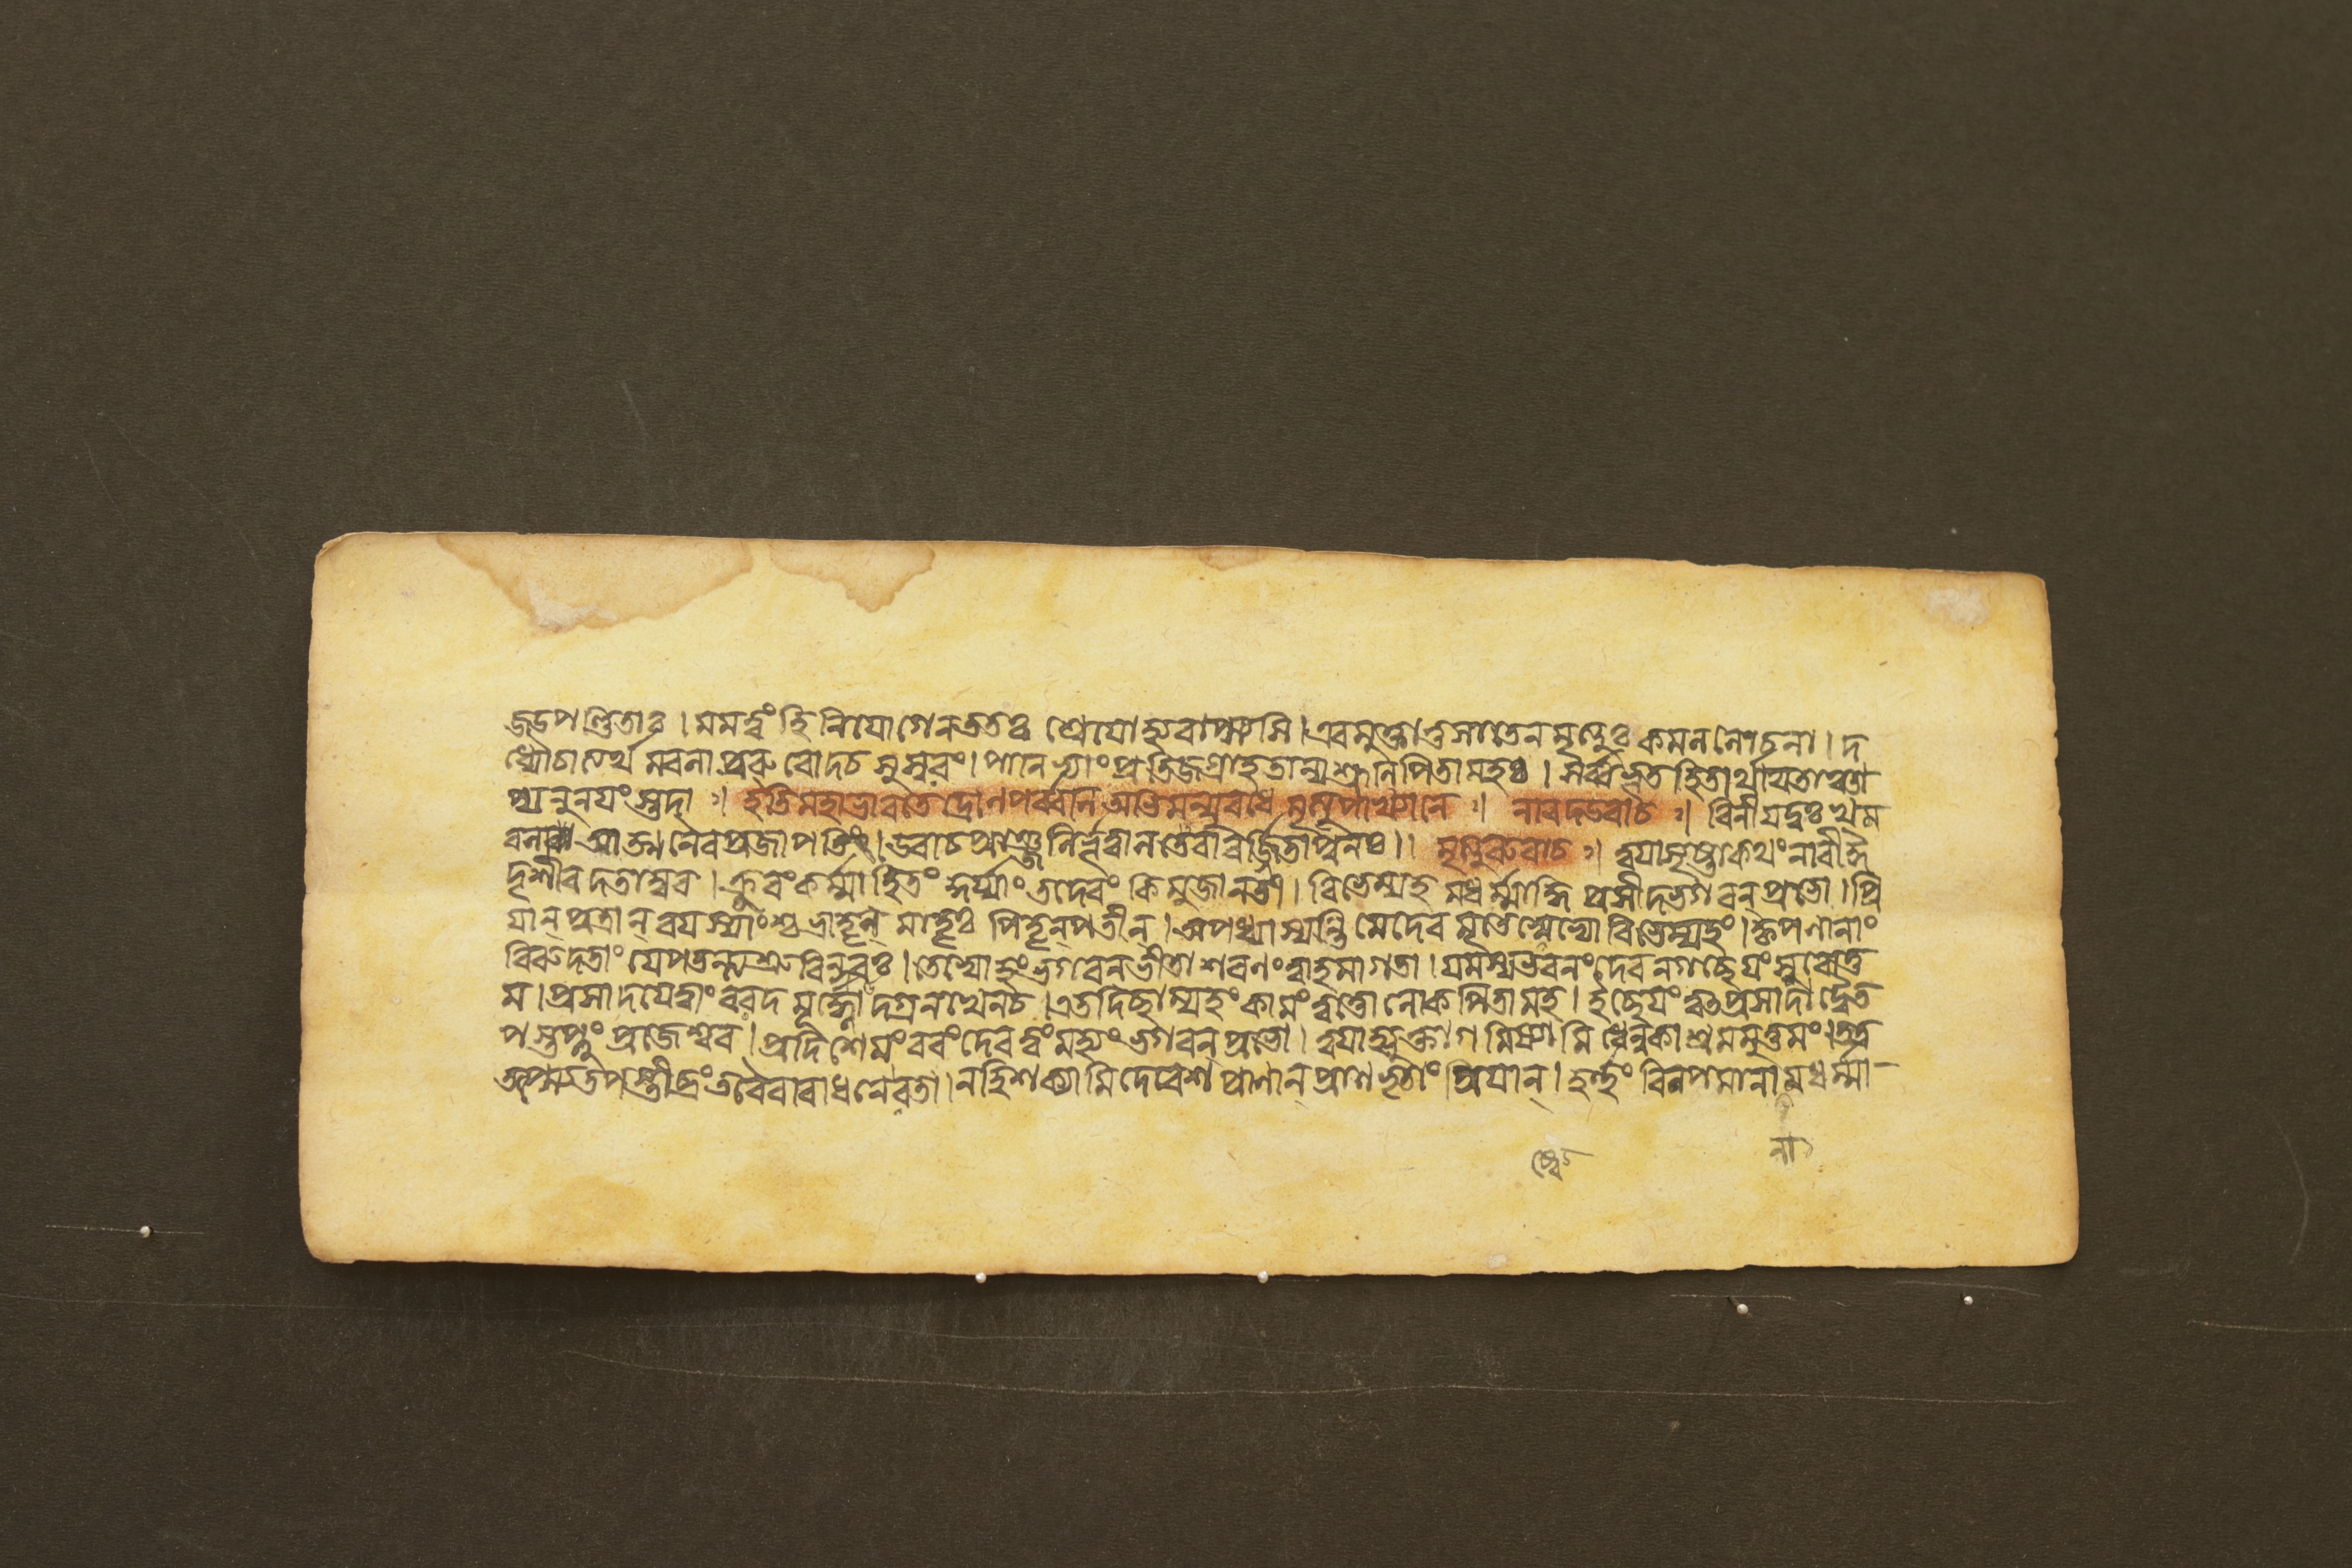 জডপণ্ডিতাঃ । মমত্বং হি নিযোগেন ততঃ শ্রেযোহ্যবাপ্স্যসি । এবমুক্তা তু সা তেন মৃত্যুঃ কমললোচনা । দ
ধ্যৌ চাত্যর্থমবলা প্ররুরোদ চ সুস্বরং । পাণিভ্যাং প্রতিজগ্রাহ তান্যশ্রূনি পিতামহঃ । সর্ব্বভূতহিতার্থায তাঞ্চা
প্যনুনযংস্তদা ঃ। ইতি মহাভারতে দ্রোণপর্ব্বনি অভিমন্যুবধে মৃত্যুপাখ্যানে ঃ। নারদউবাচ ঃ। বিনীযদুঃখম
বলা আত্মনৈব প্রজাপতিং । উবাচ প্রাঞ্জলির্ভূত্বা লতেবাবর্জ্জিতা পুনঃ ।। মৃত্যুরুবাচ ঃ। ত্বযা সৃষ্টা কথং নারী
দৃশী বদতাম্বর । ক্রুরং কর্ম্মাহিতং কুর্য্যাং তদেবং কিমু জানতী । বিভেম্যহমধর্ম্মাদ্ধি প্রসীদ ভগবন্ প্রভো । প্রি
যান্ পুত্রান্ বযস্যাংশ্চ ভ্রাতৃন্ মাতৃঃ পিতৃন্ পতীন্ । অপধ্যাস্যন্তি মে দেব মৃতেষ্বেভ্যো বিভেম্যহং । কৃপণানাং
বিরুদতাং যে পতন্ত্যশ্রুবিন্দবঃ । তেভ্যোহং ভগবন্ ভীতা শরণং ত্বাহমাগতা । যমস্য ভবনং দেব ন গচ্ছেযং সুরোত্ত
ম । প্রসাদযে ত্বাং বরদ মূর্দ্ধ্নোদগ্রনখেন চ । এতদিচ্ছাম্যহং কামং ত্বত্তো লোকপিতামহ । ইচ্ছেযং ত্বৎপ্রসাদাদ্ধি ত
পস্তপ্তুং প্রজেশ্বর । প্রদিশেমং বরং দেব ত্বং মহ্যং ভগবন্ প্রভো । ত্বযাহ্যুক্তা গমিষ্যামি ধেনুকাশ্রমমুত্তমং । তত্র
তপ্স্যে তপস্তীব্রং তবৈবারাধনে রতা । নহি শক্ষ্যামি দেবেশ প্রাণান্ প্রাণভৃতাং প্রিযান্ । হর্ত্তুং বিলপমানানামধর্ম্মা
না